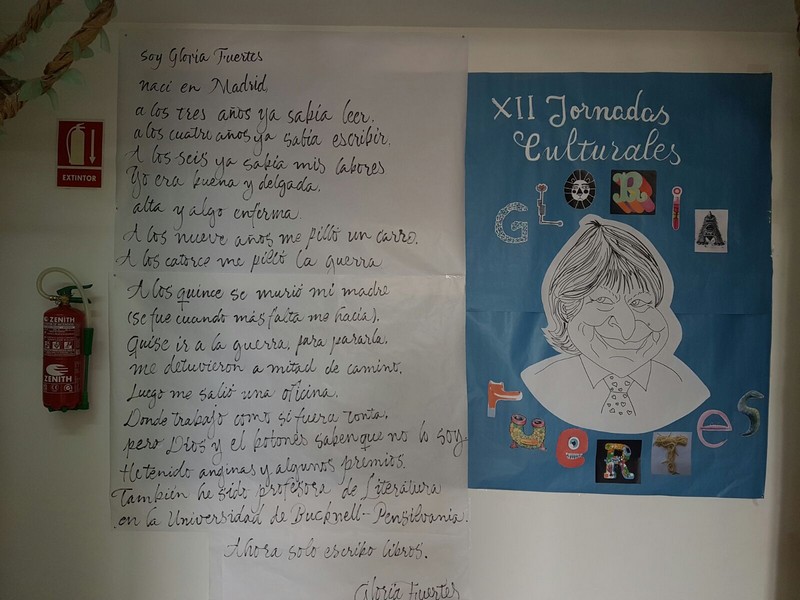 soy Gloria Fuertes
nací en Madrid
a los tres años ya sabía leer.
a los cuatro años ya sabía escribir.
A los seis ya sabía mis labores
Yo era buena y delgada.
alta y algo enferma.
A los nueve años me pilló un carro.
A los catorce me pilló la guerra
A los quince se murió mi madre
(se fue cuando más falta me hacía).
Quise ir a la guerra, para pararla.
me detuvieron a mitad de camino.
Luego me salió una oficina.
Donde trabajo como si fuera tonta.
pero Dios y el botones saben que no lo soy
He tenido anginas y algunos premios.
También he sido profesora de Literatura
en la Universidad de Bucknell-Pensilvania.
Ahora solo escribo libros.
Gloria Fuertes
XII Jornadas
Culturales
GLORIA
FUeRTeS
EXTINTOR
ZENITH
ZENITH